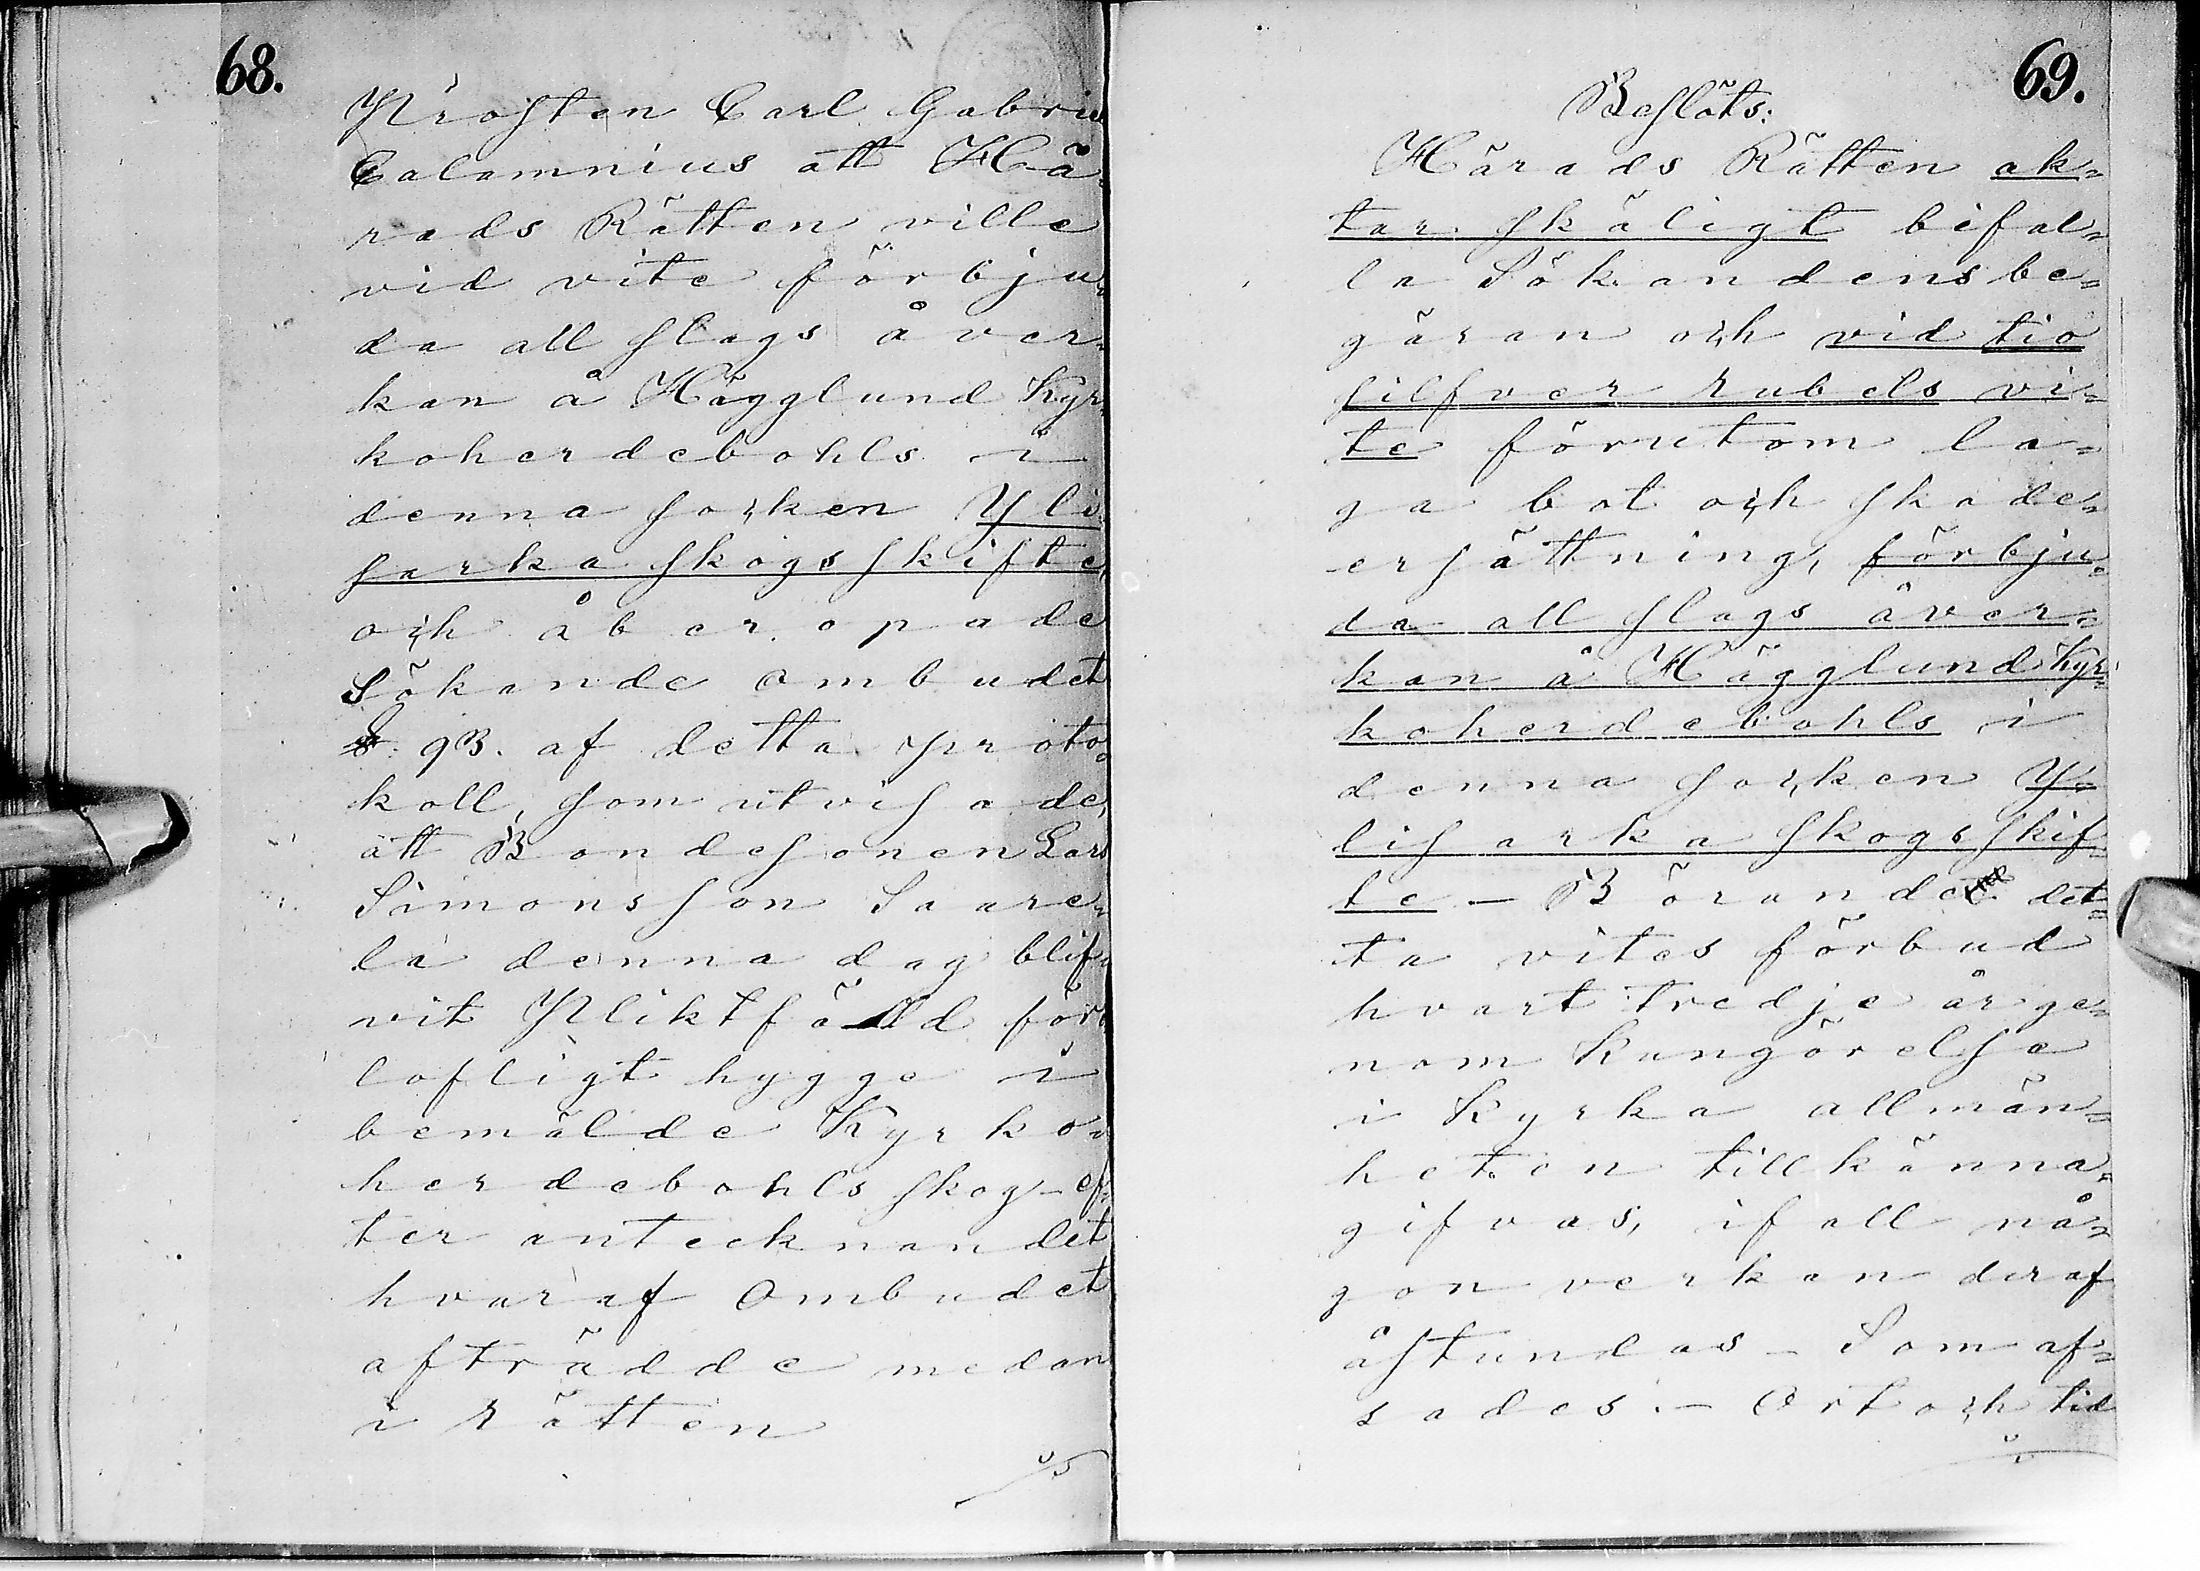 68.
Prosten Carl Gabriel
Calamnius att Hä-
rads Rätten ville
vid vite förbju-
da all slags åver-
kan å Hägglund Kyr-
koherdebohls i
denna socken Yli-
sarka skogsskifte,
och åberopade
Sökande ombudet
§. 93. af detta proto-
koll, som utvisade,
att Bondesonen Lars
Simonsson Saare-
la denna dag blif-
vit Pliktfälld för o-
lofligt hygge i
bemälde Kyrko-
herdebohls skog - ef-
ter antecknandet
hvaraf Ombudet
afträdde medan
i rätten
69.
Beslöts:
Härads Rätten ak-
tar skäligt bifal-
la Sökandens be-
gäran och vid tio
silfver rubels vi-
te förutom la-
ga bot och skade-
ersättning, förbju-
da all slags åver-
kan å Hägglund Kyr-
koherdebohls i
denna socken Y-
lisarka skogsskif-
te - Börande det-
ta vites förbud
hvart tredje år ge-
nom Kungörelse
i Kyrka allmän-
heten tillkänna-
gifvas, ifall nå-
gon verkan deraf
åstundas - Som af-
sades. - Ort och tid